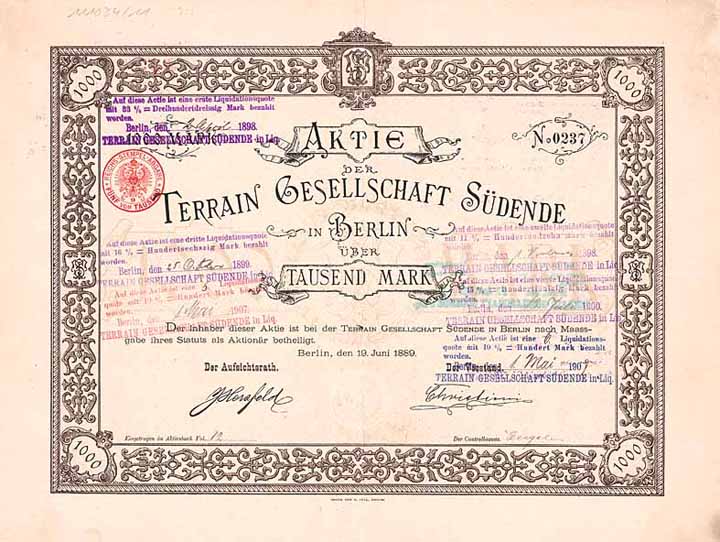 111034/11
1000
1000
Auf diese Actie ist eine erste Liquidationsquote
mit 33 % = Dreihundertdreissig Mark bezahlt
worden.
Berlin, den 1898.
TERRAIN GESELLSCHAFT SÜDENDE in Liq.
REICHS-STEMPEL-ABGABE
FÜNF VOM TAUSEND
AKTIE
No 0237
DER
TERRAIN GESELLSCHAFT SÜDENDE
IN BERLIN
ÜBER
TAUSEND MARK
Auf diese Actie ist eine zweite Liquidationsquote
mit 11 % = Mark bezahlt
worden.
Berlin, den 1898.
TERRAIN GESELLSCHAFT SÜDENDE in Liq.
Auf diese Actie ist eine dritte Liquidationsquote
mit 16 % = Hundertsechzig Mark bezahlt
worden.
Berlin, den 25 October 1899.
TERRAIN GESELLSCHAFT SÜDENDE in Liq.
1900.
TERRAIN GESELLSCHAFT SÜDENDE in Liq.
Auf diese Actie ist eine 5. Liquidations-
quote mit 10 % = Hundert Mark bezahlt
worden.
Berlin, den 1 Mai 1907.
TERRAIN GESELLSCHAFT SÜDENDE in Liq.
Der Inhaber dieser Aktie ist bei der TERRAIN GESELLSCHAFT SÜDENDE IN BERLIN nach Maass-
gabe ihres Statuts als Aktionär betheiligt.
Berlin, den 19. Juni 1889.
Auf diese Actie ist eine 6 Liquidations-
quote mit 10 % = Hundert Mark bezahlt
worden.
Mai 190
TERRAIN GESELLSCHAFT SÜDENDE in Liq.
Der Aufsichtsrath.
Der Vorstand.
Eingetragen im Aktienbuch Fol. 12
Der Controlleur.
1000
1000